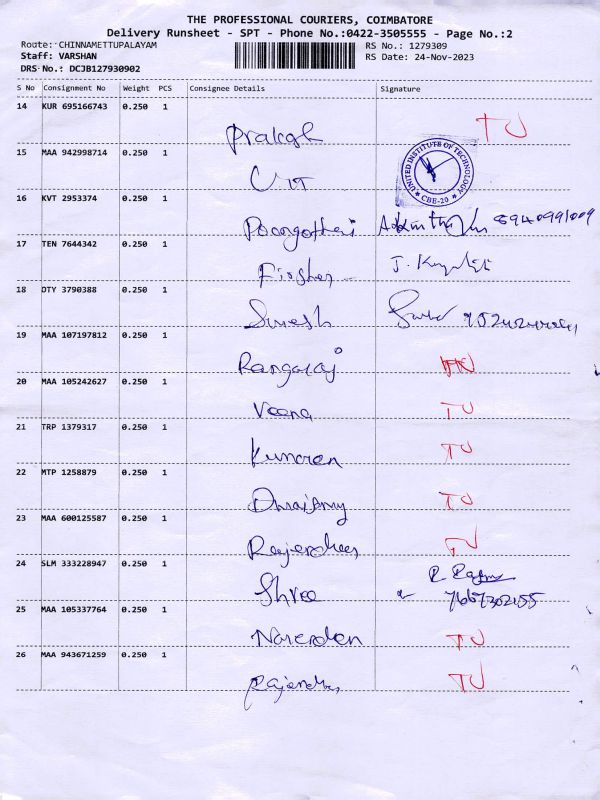 THE PROFESSIONAL COURIERS, COIMBATORE
Delivery Runsheet - SPT - Phone No.:0422-3505555 - Page No.:2
Route: CHINNAMETTUPALAYAM RS No.: 1279309
Staff: VARSHAN RS Date: 24-Nov-2023
DRS No.: DCJB127930902
S No Consignment No Weight PCS Consignee Details Signature
14 KUR 695166743 0.250 1
Prakash TU
15 MAA 942998714 0.250 1
UIT UNITED INSTITUTE OF TECHNOLOGY CBE-20
16 KVT 2953374 0.250 1
Poongothai 8940991009
17 TEN 7644342 0.250 1
J.
18 DTY 3790388 0.250 1
Suresh
19 MAA 107197812 0.250 1
Rangaraj
20 MAA 105242627 0.250 1
Veena TU
21 TRP 1379317 0.250 1
Kumaran TU
22 MTP 1258879 0.250 1
TU
23 MAA 600125587 0.250 1
TU
24 SLM 333228947 0.250 1
Shree R
7667302155
25 MAA 105337764 0.250 1
Narendan TU
26 MAA 943671259 0.250 1
TU